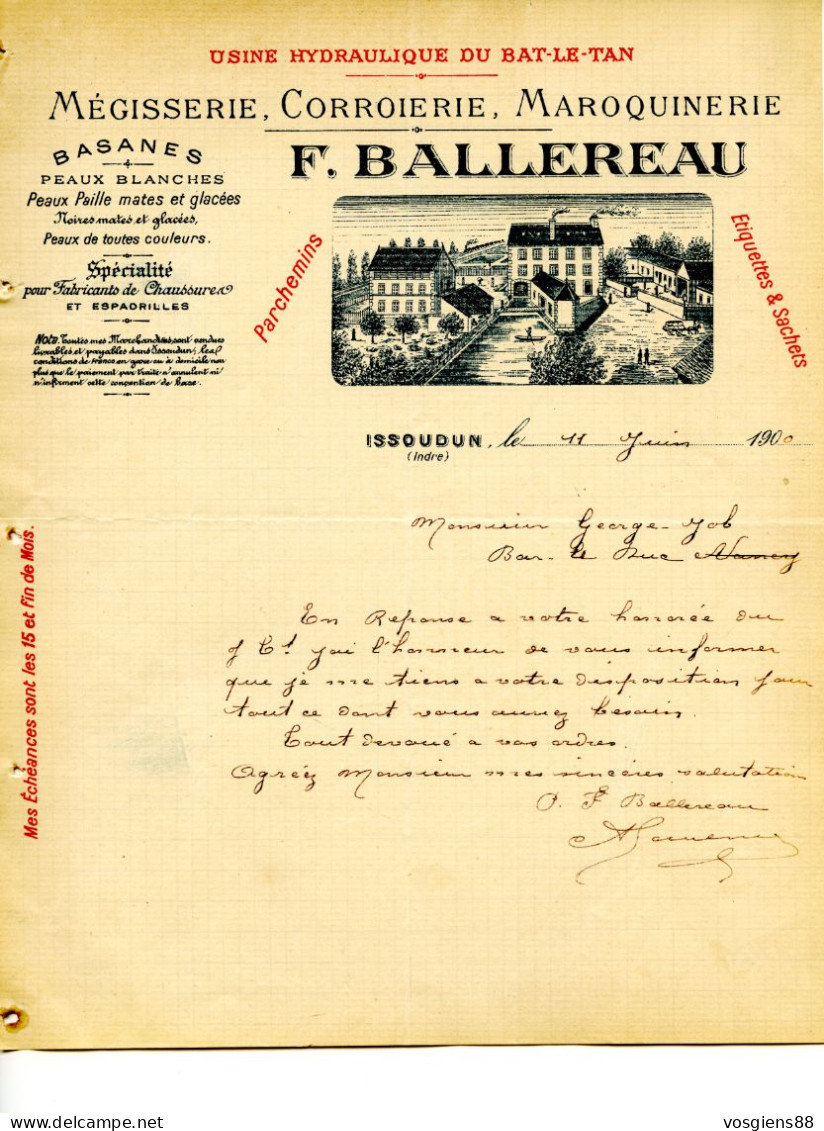 USINE HYDRAULIQUE DU BAT-LE-TAN
MÉGISSERIE, CORROIERIE, MAROQUINERIE
F. BALLEREAU
BASANES
PEAUX BLANCHES
Peaux Paille mates et glacées
Noires mates et glacées,
Peaux de toutes couleurs.
Spécialité
pour Fabricants de Chaussures
ET ESPADRILLES
Nota. Toutes mes Marchandises sont vendues
livrables et payables dans Issoudun, les
conditions de franco en gare ou à domicile non
plus que le paiement par traite n'annulent ni
n'infirment cette convention de base.
Parchemins
Etiquettes & Sachets
ISSOUDUN, le 11 Juin 1900
(Indre)
Mes Échéances sont les 15 et fin de Mois.
Monsieur George-Job
Bar-le Duc Nancy
En Reponse a votre honorée du
J'ai l'honneur de vous informer
que je me tiens a votre disposition pour
tout ce dont vous aurez besoin.
Tout devoué a vos ordres.
Agréez Monsieur mes sincères salutation
P. F Ballereau
vosgiens88